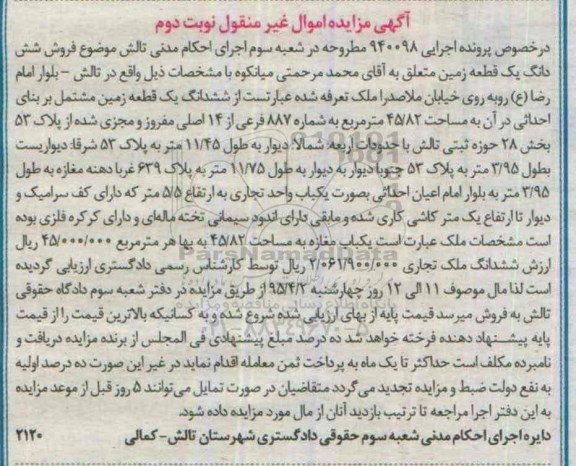 آگهی مزایده اموال غیر منقول نوبت دوم
درخصوص پرونده اجرایی ۹۴۰۰۹۸ مطروحه در شعبه سوم اجرای احکام مدنی تالش موضوع فروش شش
دانگ یک قطعه زمین متعلق به آقای محمد مرحمتی میانکوه با مشخصات ذیل واقع در تالش - بلوار امام
رضا (ع) روبه روی خیابان ملاصدرا ملک تعرفه شده عبارتست از ششدانگ یک قطعه زمین مشتمل بر بنای
احداثی در آن به مساحت ۴۵/۸۲ مترمربع به شماره ۸۸۷ فرعی از ۱۴ اصلی مفروز و مجزی شده از پلاک ۵۳
بخش ۲۸ حوزه ثبتی تالش با حدودات اربعه: شمالا: دیوار به طول ۱۱/۴۵ متر به پلاک ۵۳ شرقا: دیواریست
بطول ۳/۹۵ متر به پلاک ۵۳ جنوبا دیوار به دیوار به طول ۱۱/۷۵ متر به پلاک ۶۳۹ غربا دهنه مغازه به طول
۳/۹۵ متر به بلوار امام اعیان احداثی بصورت یکباب واحد تجاری به ارتفاع ۵/۵ متر که دارای کف سرامیک و
دیوار تا ارتفاع یک متر کاشی کاری شده و مابقی دارای اندود سیمانی تخته ماله‌ای و دارای کرکره فلزی بوده
است مشخصات ملک عبارت است یکباب مغازه به مساحت ۴۵/۸۲ به بها هر مترمربع ۴۵/۰۰۰/۰۰۰ ریال
ارزش ششدانگ ملک تجاری ۲/۰۶۱/۹۰۰/۰۰۰ ریال توسط کارشناس رسمی دادگستری ارزیابی گردیده
است لذا مال موصوف ۱۱ الی ۱۲ روز چهارشنبه ۹۵/۴/۲ از طریق مزایده در دفتر شعبه سوم دادگاه حقوقی
تالش به فروش میرسد قیمت پایه از بهای ارزیابی شده شروع شده و به کسانیکه بالاترین قیمت را از قیمت
پایه پیشنهاد دهنده فرخته خواهد شد ده درصد مبلغ پیشنهادی فی المجلس از برنده مزایده دریافت و
نامبرده مکلف است حداکثر تا یک ماه به پرداخت ثمن معامله اقدام نماید در غیر این صورت ده درصد اولیه
به نفع دولت ضبط و مزایده تجدید می گردد متقاضیان در صورت تمایل می‌توانند ۵ روز قبل از موعد مزایده
به این دفتر اجرا مراجعه تا ترتیب بازدید آنان از مال مورد مزایده داده شود.
دایره اجرای احکام مدنی شعبه سوم حقوقی دادگستری شهرستان تالش - کمالی ۲۱۲۰